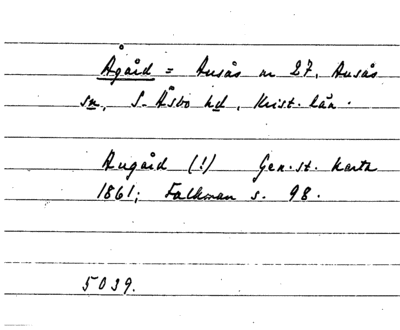 Ågård = Ausås nr 27, Ausås
sn, S. Åsbo hd, Krist. län.
Augård (!) Gen. st. karta
1861; Falkman s. 98.
5039.